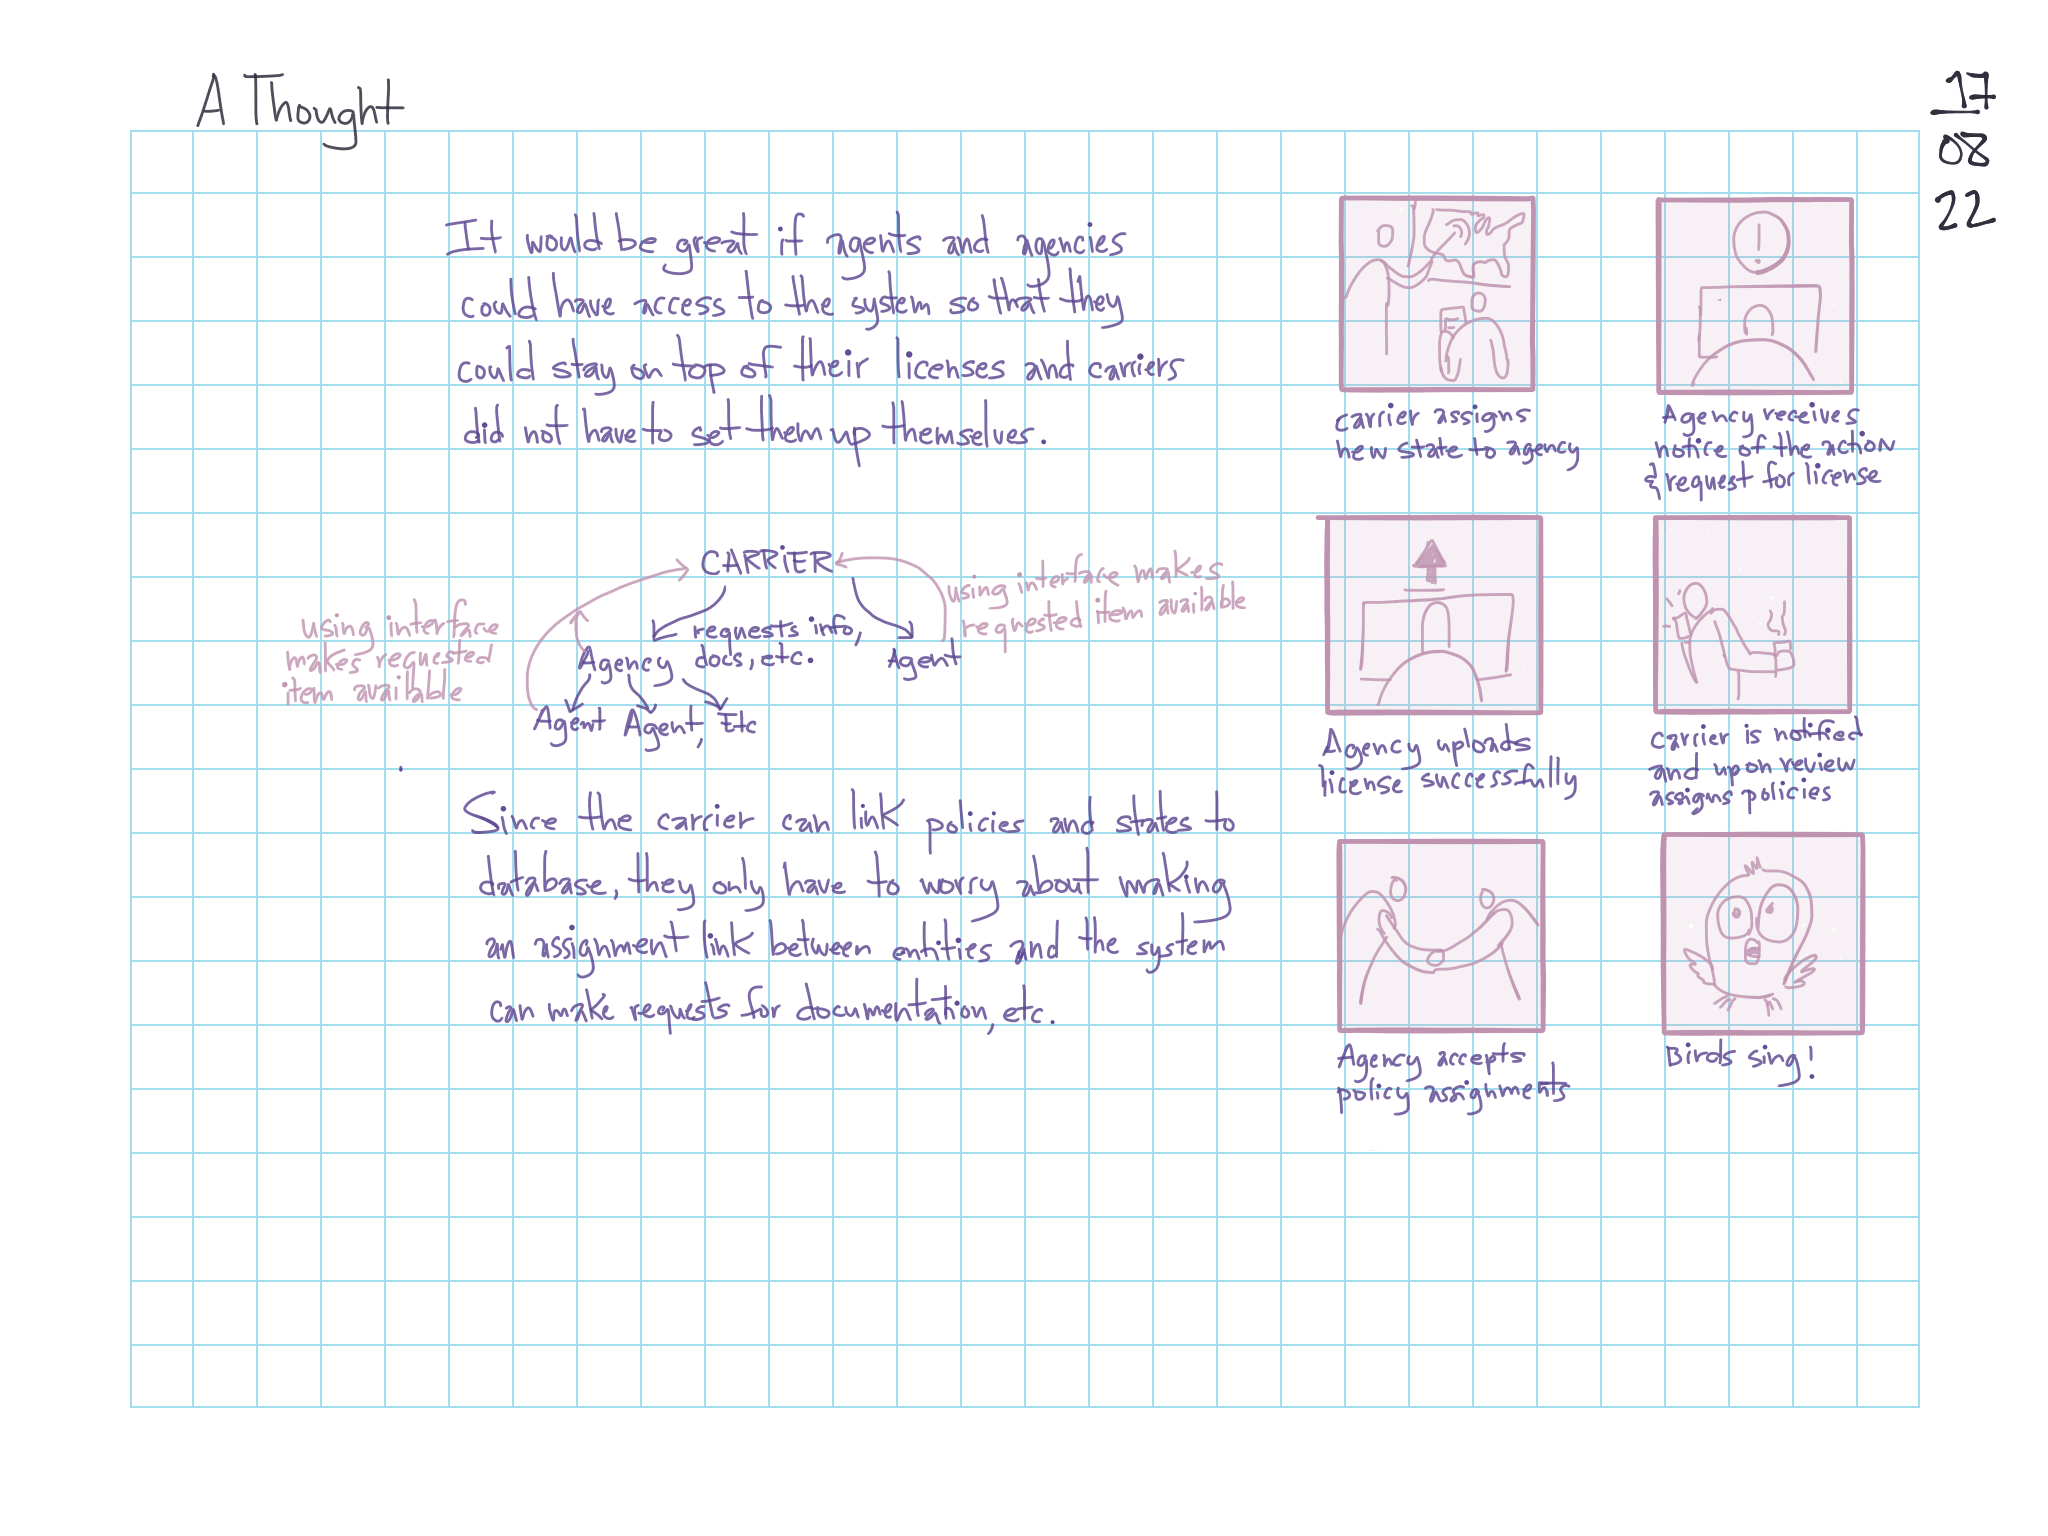 A Thought
17
08
22
It would be great if agents and agencies
could have access to the system so that they
could stay on top of their licenses and carriers
did not have to set them up themselves.
CARRiER
requests info,
docs, etc.
Agency
Agent
Agent Agent, Etc
using interface
makes requested
item available
using interface makes
requested item available
Since the carrier can link policies and states to
database, they only have to worry about making
an assignment link between entities and the system
can make requests for documentation, etc.
!
carrier assigns
new state to agency
Agency receives
notice of the action
& request for license
Agency uploads
license successfully
carrier is notified
and upon review
assigns policies
Agency accepts
policy assignments
Birds sing!